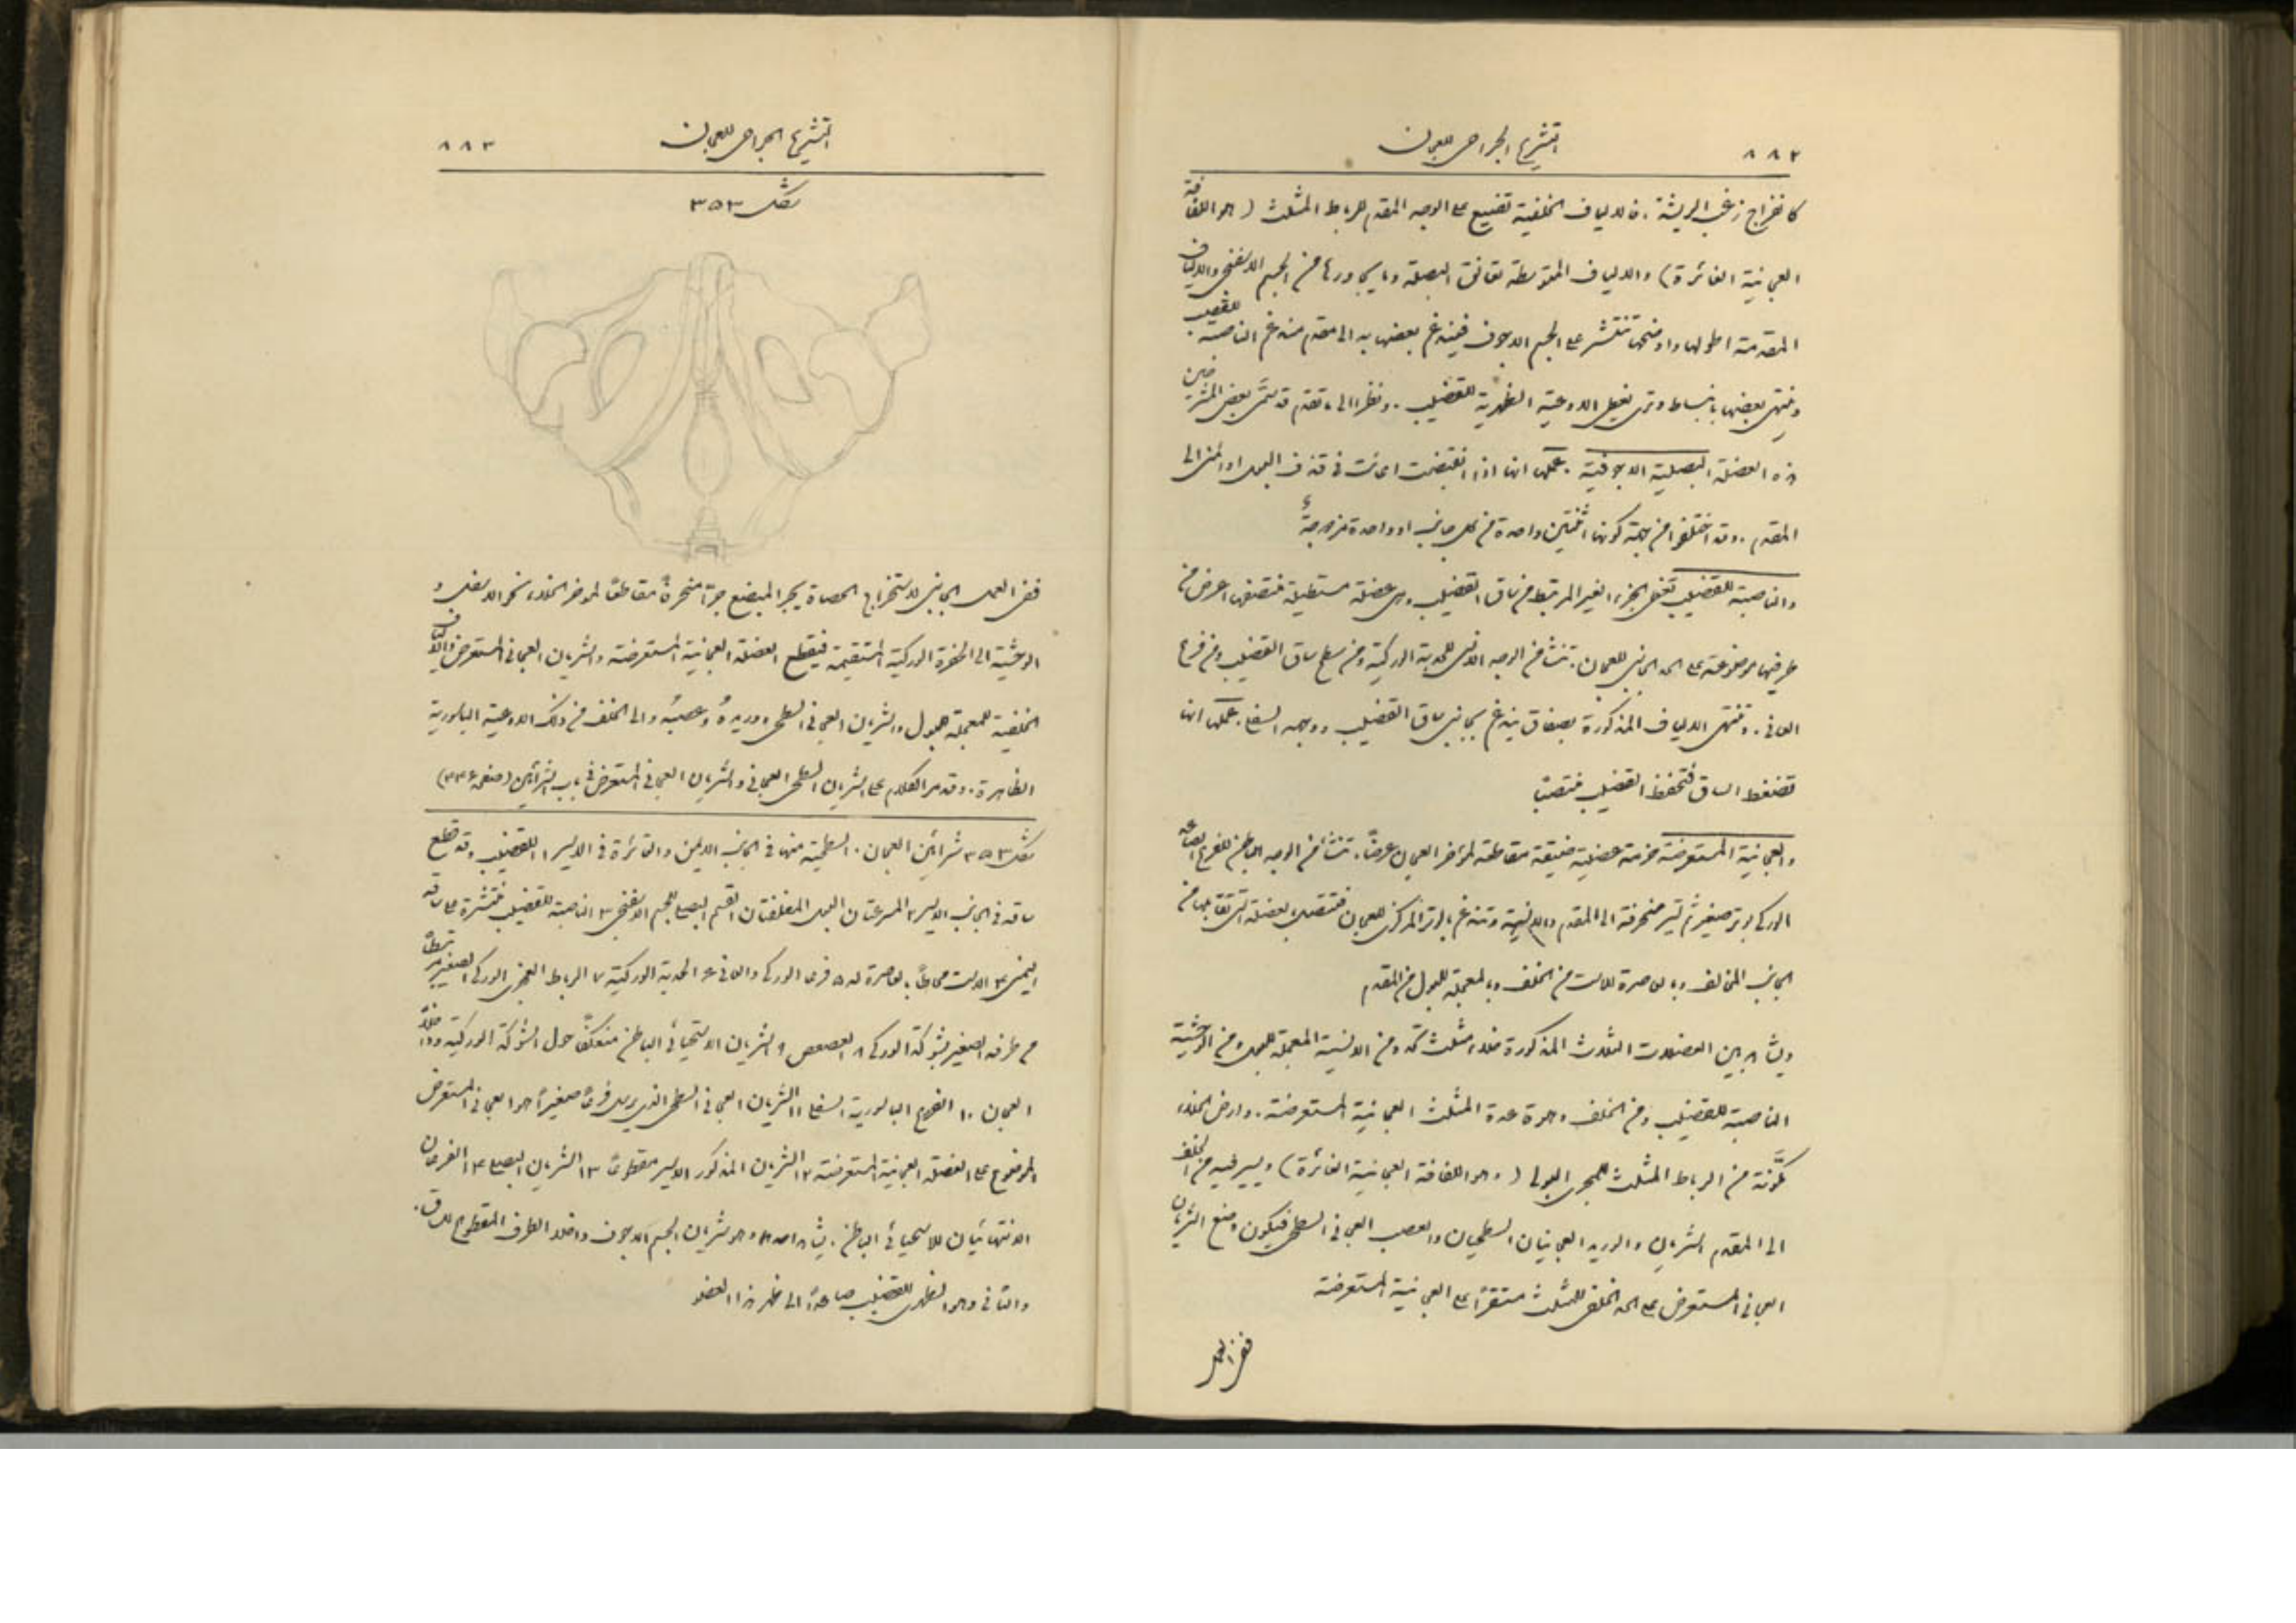 ٨٨٢ التشريح الجراحي للعجان
كانفراج زغب الريشة. فالالياف الخلفية تضيع على الوجه المقدم للرباط المثلث (هو اللفافة
العجانية الغائرة) والالياف المتوسطة تعانق البصلة وما يجاورها من الجسم الاسفنجي والالياف
المقدمة اطولها واوضحها تنتشر على الجسم الاجوف فيندغم بعضها به الى مقدم مندغم الناصبة للقضيب
وينتهي بعضها بانبساط وتري يغطي الاوعية الظهرية للقضيب. ونظرا الى ما تقدم قد سمى بعض المشرحين
هذه العضلة البصلية الاجوفية. عملها انها اذا انقبضت اعانت في قذف البول او المني الى
المقدم. وقد اختلفوا من جهة كونها اثنتين واحدة من كل جانب او واحدة مزدوجة
والناصبة للقضيب تغطي الجزء الغير المرتبط من ساق القضيب وهي عضلة مستطيلة منتصفها اعرض من
طرفيها موضوعة على الحد الجانبي للعجان. تنشأ من الوجه الانسي للحدبة الوركية ومن سطح ساق القضيب ومن فرع
العاني. وتنتهي الالياف المذكورة بصفاق يندغم بجانبي ساق القضيب ووجهه السفلي. عملها انها
تضغط الساق فتحفظ القضيب منتصبا
والعجانية المستعرضة حزمة عضلية ضيقة مقاطعة لمؤخر العجان عرضا. تنشأ من الوجه الباطن للفرع الصاعد
الوركي بوتر صغير ثم تسير منحرفة الى المقدم والانسية وتندغم بالوتر المركزي للعجان فتتصل بعضلة التي تقابلها من
الجانب المخالف وبالعاصرة للاست من الخلف وبالمعجلة للبول من المقدم
ويشاهد بين العضلات الثلاث المذكورة خلاء مثلث تحده من الانسية المعجلة للبول ومن الوحشية
الناصبة للقضيب ومن الخلف وهو قاعدة المثلث العجانية المستعرضة. وارض الخلاء
مكونة من الرباط المثلث للمجرى البولي (وهو اللفافة العجانية الغائرة) ويسير فيه من الخلف
الى المقدم الشريان والوريد العجانيان السطحيان والعصب العجاني السطحي فيكون وضع الشريان
العجاني المستعرض على الحد الخلفي للمثلث مستقرا على العجانية المستعرضة
ففي العمل
التشريح الجراحي للعجان ٨٨٣
شكل ٣٥٣
ففي العمل الجانبي لاستخراج الحصاة يجر المبضع جرة منحرفة مقاطعا لمؤخر الخلاء نحو الاسفل و
الوحشية الى الحفرة الوركية المستقيمة فيقطع العضلة العجانية المستعرضة والشريان العجاني المستعرض والالياف
الخلفية للمعجلة للبول والشريان العجاني السطحي ووريده وعصبه والى الخلف من ذلك الاوعية الباسورية
الظاهرة. وقد مر الكلام على الشريان السطحي العجاني والشريان العجاني المستعرض في باب الشرايين (صفحة ٣٣٤)
شكل ٣٥٣ شرايين العجان. السطحية منها في الجانب الايمن والغائرة في الايسر ١ القضيب وقد قطع
ساقه في الجانب الايسر ٢ المسرعتان البول المغلفتان القسم البصلي للجسم الاسفنجي ٣ الناصبة للقضيب منتشرة على ساقه
اليمنى ٤ الاست محاطا بالعاصرة له ٥ فرعي الوركي والعاني ٦ الحدبة الوركية ٧ الرباط العجزي الوركي الصغير مرتبطا
من طرفه الصغير بشوكة الوركي ٨ العصعص ٩ الشريان الاستحيائي الباطن منعكفا حول الشوكة الوركية وداخلا
العجان ١٠ الفروع الباسورية السفلى ١١ الشريان العجاني السطحي الذي يرسل فرعا صغيرا هو العجاني المستعرض
الموضوع على العضلة العجانية المستعرضة ١٢ الشريان المذكور الايسر مقطوعا ١٣ الشريان البصلي ١٤ الفرعان
الانتهائيان للاستحيائي الباطن. يشاهد احدهما وهو شريان الجسم الاجوف داخلا الطرف المقطوع للساق.
والثاني وهو الظهري للقضيب صاعدا الى ظهر هذا العضو